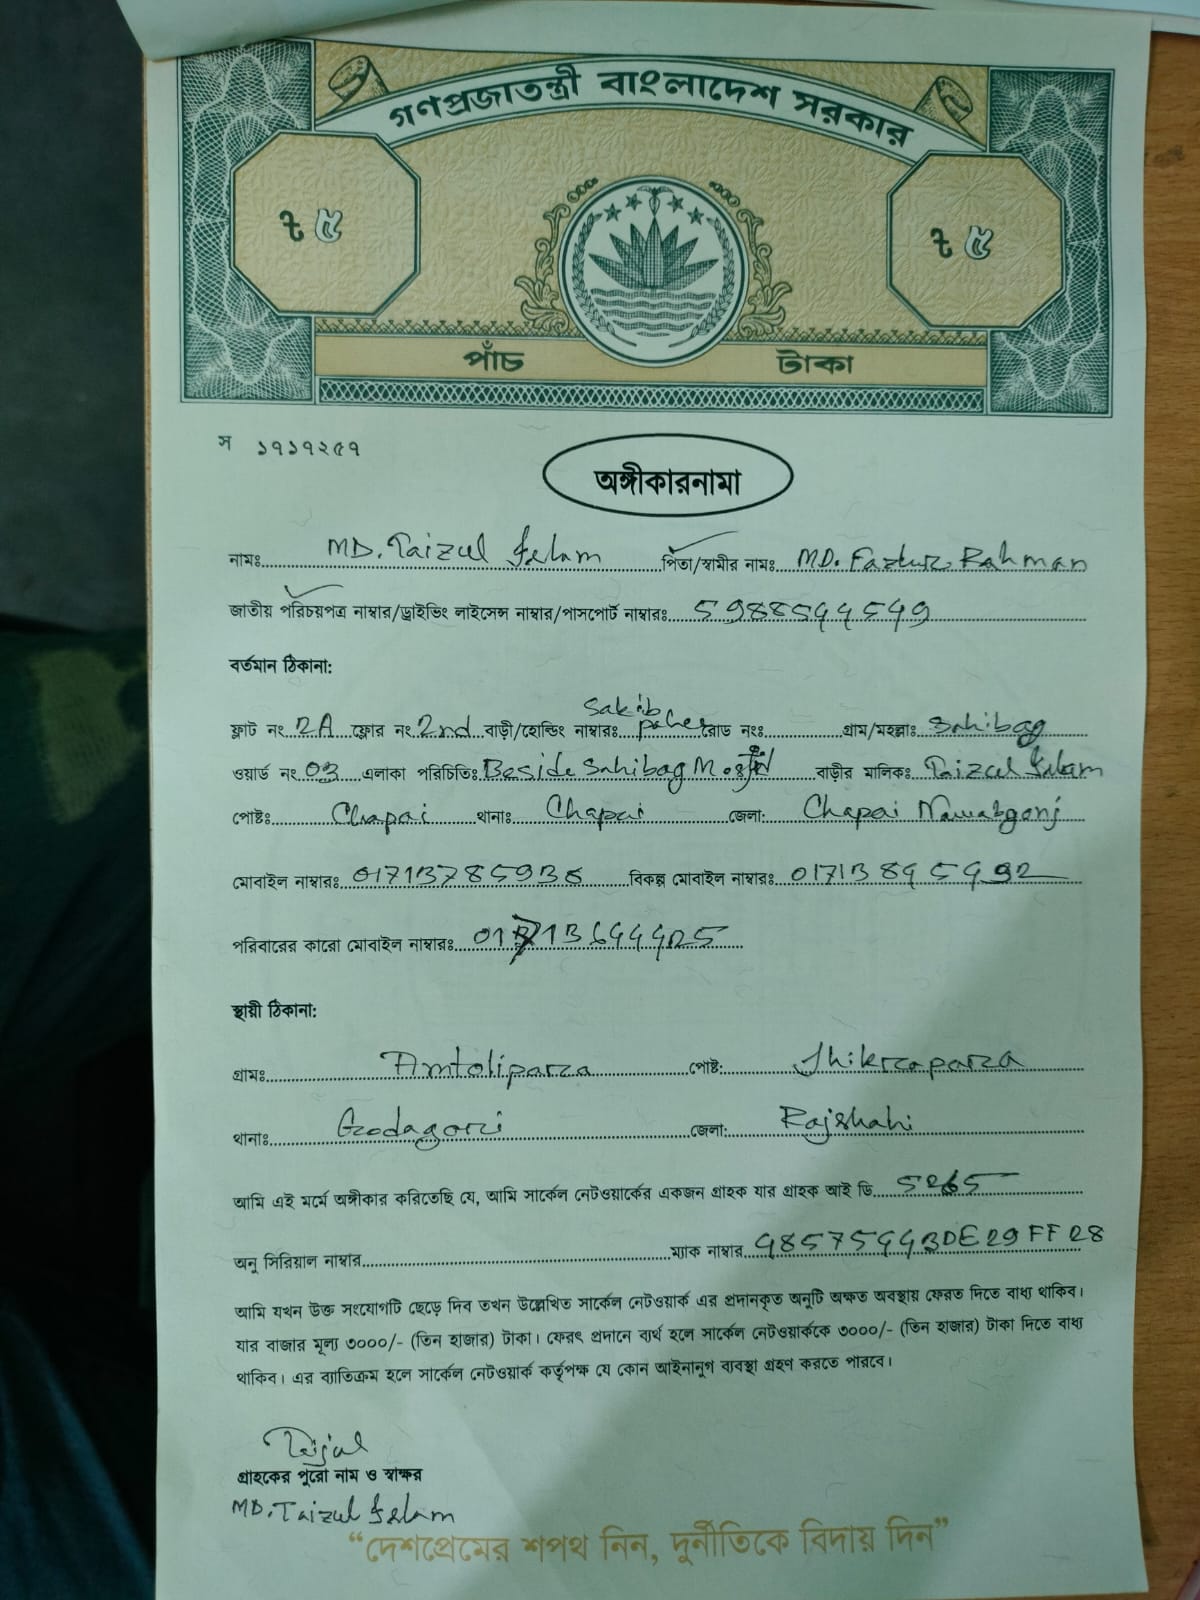 গণপ্রজাতন্ত্রী বাংলাদেশ সরকার
৳ ৫ ৳ ৫
পাঁচ টাকা
স ১৭১৭২৫৭
অঙ্গীকারনামা
নামঃ MD. Taizul Islam পিতা/স্বামীর নামঃ MD. Fazlur Rahman
জাতীয় পরিচয়পত্র নাম্বার/ড্রাইভিং লাইসেন্স নাম্বার/পাসপোর্ট নাম্বারঃ
বর্তমান ঠিকানা:
ফ্লাট নং 2A ফ্লোর নং 2nd বাড়ী/হোল্ডিং নাম্বারঃ Sakib রোড নংঃ গ্রাম/মহল্লাঃ Sahibag
ওয়ার্ড নং 03 এলাকা পরিচিতিঃ Beside Sahibag বাড়ীর মালিকঃ Taizul Islam
পোষ্টঃ Chapai থানাঃ Chapai জেলা: Chapai Nawabganj
মোবাইল নাম্বারঃ বিকল্প মোবাইল নাম্বারঃ
পরিবারের কারো মোবাইল নাম্বারঃ
স্থায়ী ঠিকানা:
গ্রামঃ Amtolipara পোষ্ট: Jhikrapara
থানাঃ Godagari জেলা: Rajshahi
আমি এই মর্মে অঙ্গীকার করিতেছি যে, আমি সার্কেল নেটওয়ার্কের একজন গ্রাহক যার গ্রাহক আই ডি
অনু সিরিয়াল নাম্বার ম্যাক নাম্বার
আমি যখন উক্ত সংযোগটি ছেড়ে দিব তখন উল্লেখিত সার্কেল নেটওয়ার্ক এর প্রদানকৃত অনুটি অক্ষত অবস্থায় ফেরত দিতে বাধ্য থাকিব।
যার বাজার মূল্য ৩০০০/- (তিন হাজার) টাকা। ফেরৎ প্রদানে ব্যর্থ হলে সার্কেল নেটওয়ার্ককে ৩০০০/- (তিন হাজার) টাকা দিতে বাধ্য
থাকিব। এর ব্যতিক্রম হলে সার্কেল নেটওয়ার্ক কর্তৃপক্ষ যে কোন আইনানুগ ব্যবস্থা গ্রহণ করতে পারবে।
Taijul
গ্রাহকের পুরো নাম ও স্বাক্ষর
MD. Taizul Islam
“দেশপ্রেমের শপথ নিন, দুর্নীতিকে বিদায় দিন”